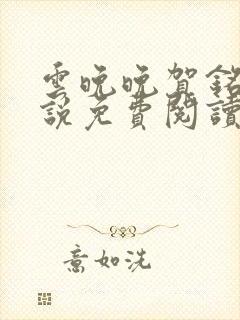 雲晚晚賀銘
說免費閱讀
意如洗